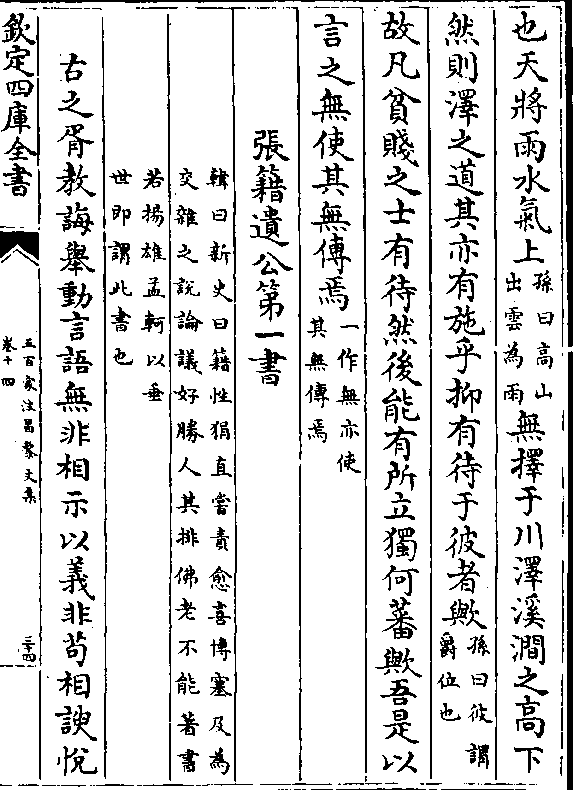 也天將雨水氣上孫曰高山出雲為雨無擇于川澤溪澗之高下
然則澤之道其亦有施乎抑有待于彼者歟孫曰彼謂爵位也
故凡貧賤之士有待然後能有所立獨何蕃歟吾是以
言之無使其無傳焉一作無亦使其無傳焉
張籍遺公第一書
韓曰新史曰籍性狷直嘗責愈喜博塞及為
交雜之說論議好勝人其排佛老不能著書
若揚雄孟軻以垂
世即謂此書也
古之胥教誨舉動言語無非相示以義非苟相諛悅
欽定四庫全書
五百家注昌黎文集
卷十四
三十四